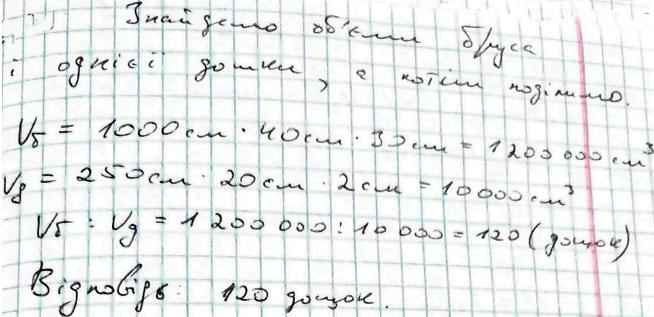 Знайдемо об'єми бруса
і однієї дошки, а потім поділимо.
Vб = 1000см · 40см · 30см = 1200000см³
Vд = 250см · 20см · 2см = 10000см³
Vб : Vд = 1 200 000 : 10 000 = 120 (дощок)
Відповідь: 120 дощок.